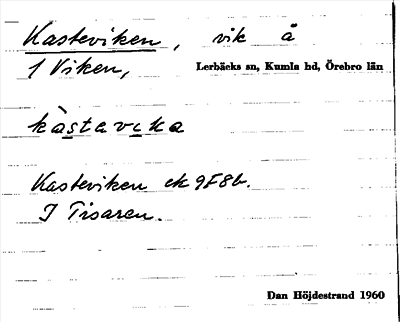 Kasteviken, vik å
1 Viken, Lerbäcks sn, Kumla hd, Örebro län
kàstavɩka
Kasteviken ek 9F8b.
I Tisaren.
Dan Höjdestrand 1960